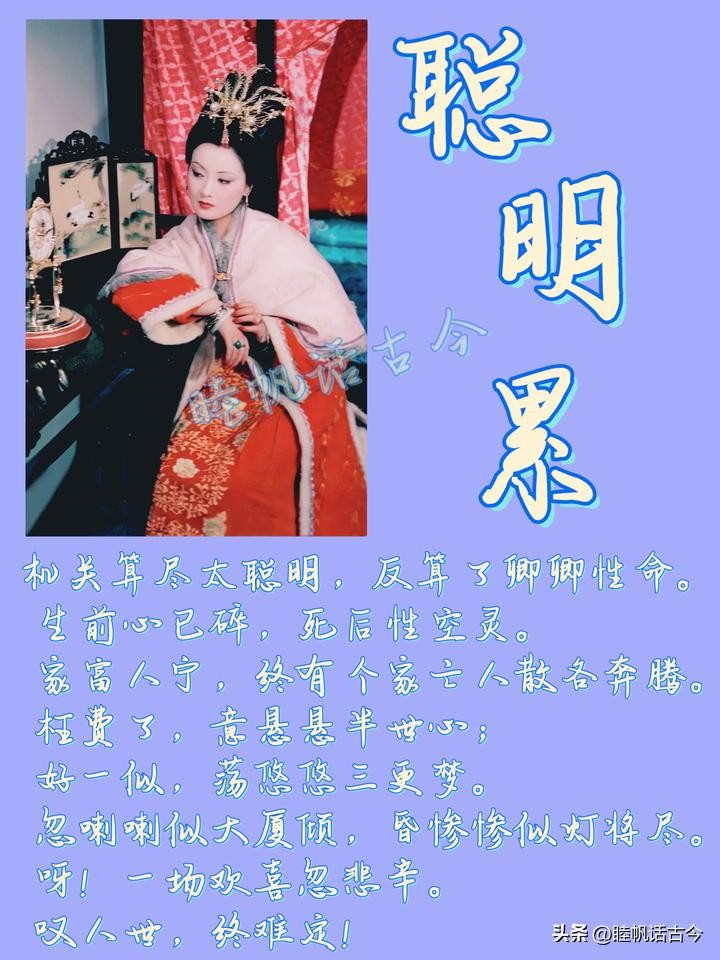 聪
明
累
睦帆话古今
机关算尽太聪明，反算了卿卿性命。
生前心已碎，死后性空灵。
家富人宁，终有个家亡人散各奔腾。
枉费了，意悬悬半世心；
好一似，荡悠悠三更梦。
忽喇喇似大厦倾，昏惨惨似灯将尽。
呀！一场欢喜忽悲辛。
叹人世，终难定！
头条 @睦帆话古今